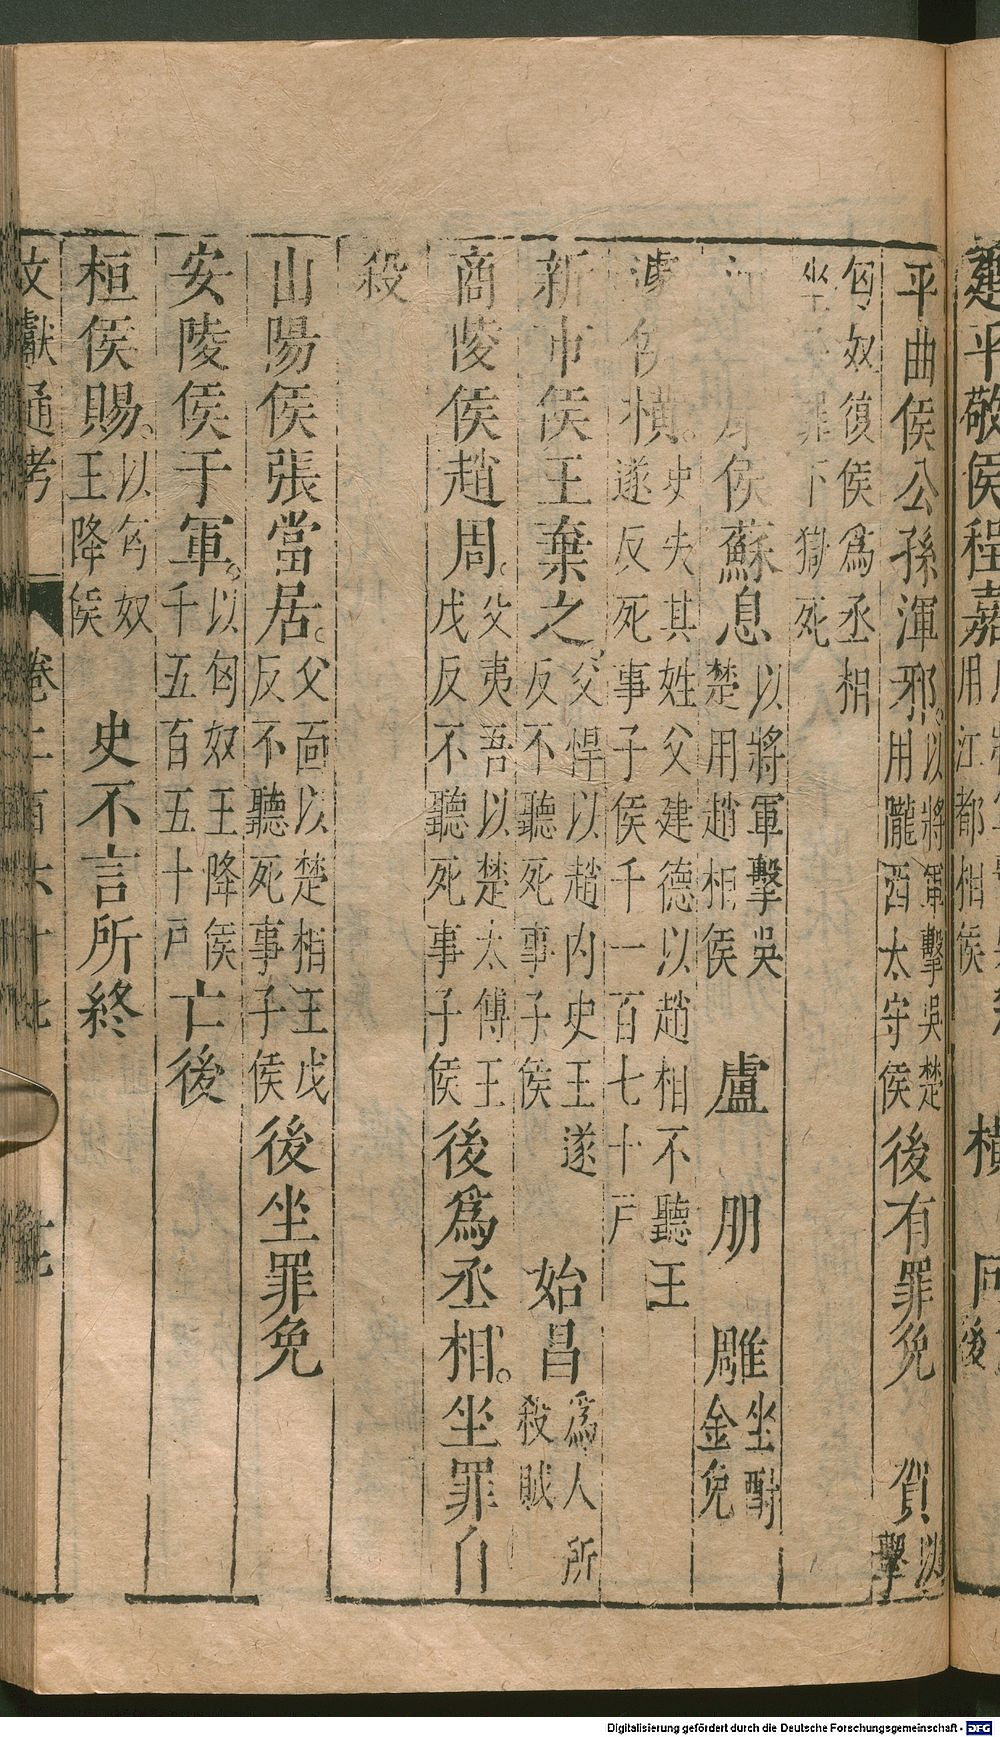 平敬侯程嘉 用江都相侯 橫 後
平曲侯公孫渾邪。以將軍擊吳楚用隴西太守侯 後有罪免 賀以擊
匈奴復侯爲丞相坐罪下獄死
侯蘇息以將軍擊吳楚用趙相侯 盧 朋 雕坐酎金免
侯橫。史失其姓父建德以趙相不聽王遂反死事子侯千一百七十戶
新市侯王棄之父悍以趙內史王遂反不聽死事子侯 始昌爲人所殺賊
商陵侯趙周。父夷吾以楚太傅王戊反不聽死事子侯 後爲丞相。坐罪自
殺
山陽侯張當居。父囬以楚相王戊反不聽死事子侯 後坐罪免
安陵侯于軍。以匈奴王降侯千五百五十戶 亡後
桓侯賜。以匈奴王降侯 史不言所終
文獻通考 卷二百六十
Digitalisierung gefördert durch die Deutsche Forschungsgemeinschaft - DFG